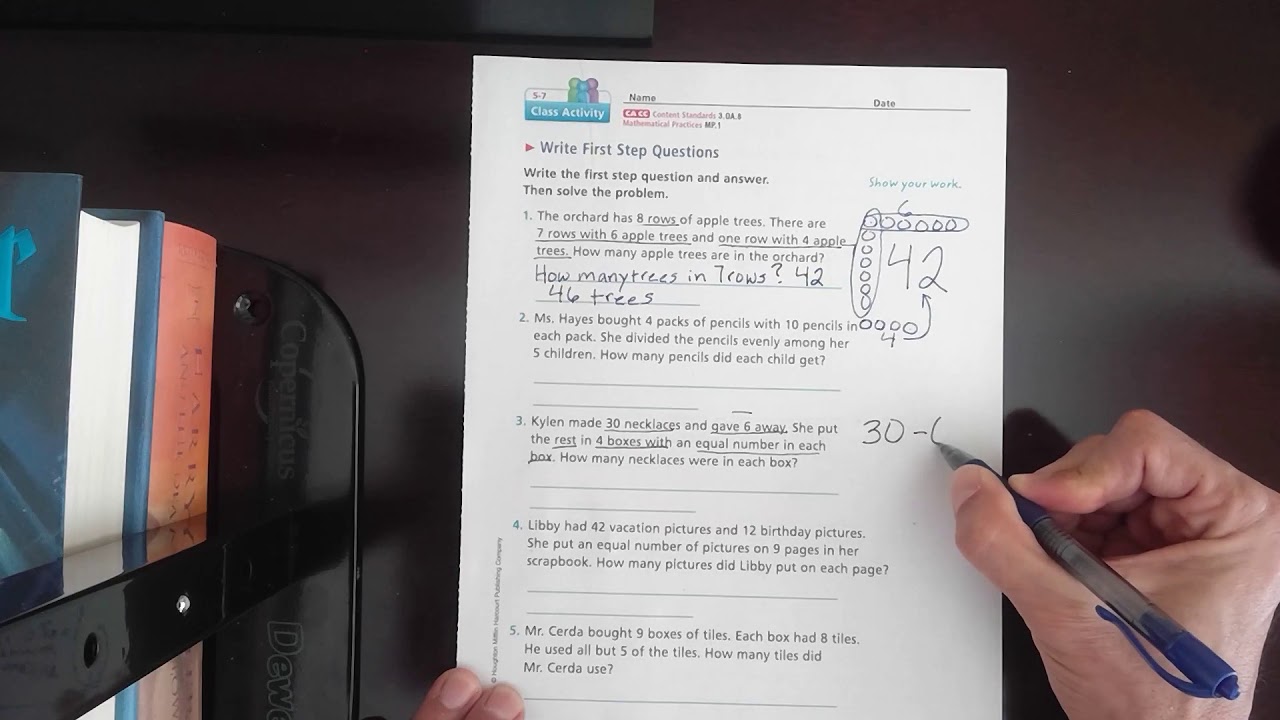 S-7
Class Activity
Name
Date
CA CC Content Standards 3.OA.8
Mathematical Practices MP.1
► Write First Step Questions
Write the first step question and answer.
Then solve the problem.
Show your work.
1. The orchard has 8 rows of apple trees. There are
7 rows with 6 apple trees and one row with 4 apple
trees. How many apple trees are in the orchard?
How many trees in 7 rows? 42
46 trees
6
42
4
2. Ms. Hayes bought 4 packs of pencils with 10 pencils in
each pack. She divided the pencils evenly among her
5 children. How many pencils did each child get?
3. Kylen made 30 necklaces and gave 6 away. She put
the rest in 4 boxes with an equal number in each
box. How many necklaces were in each box?
30 -
4. Libby had 42 vacation pictures and 12 birthday pictures.
She put an equal number of pictures on 9 pages in her
scrapbook. How many pictures did Libby put on each page?
5. Mr. Cerda bought 9 boxes of tiles. Each box had 8 tiles.
He used all but 5 of the tiles. How many tiles did
Mr. Cerda use?
© Houghton Mifflin Harcourt Publishing Company
Copernicus
Dewe
HARRY